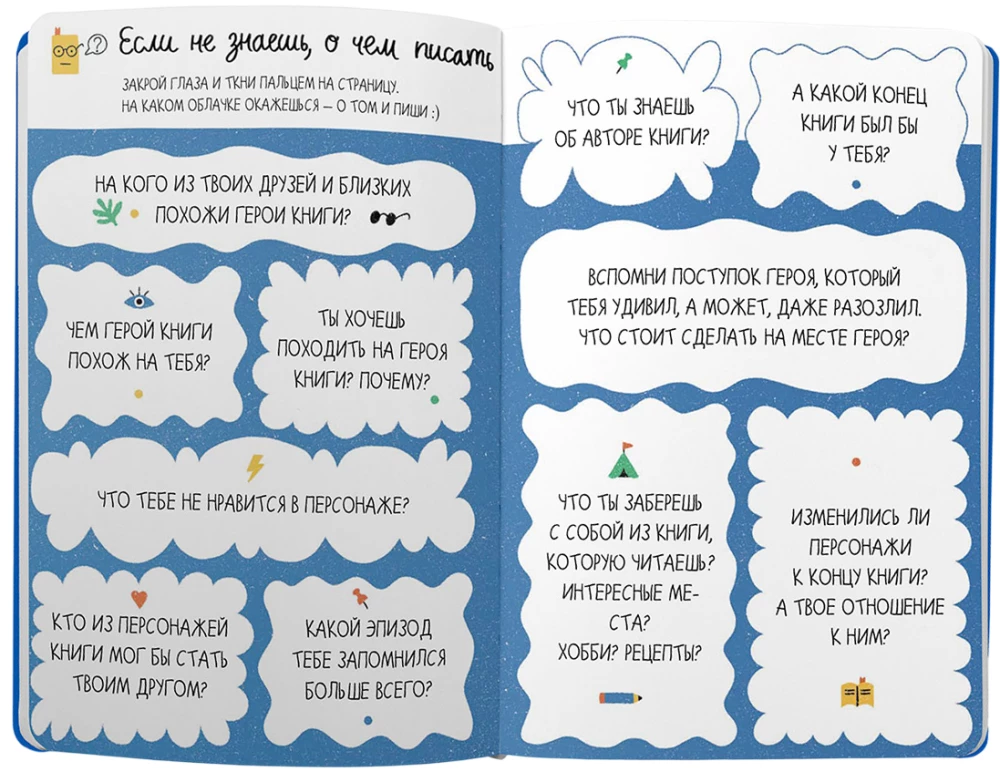 Если не знаешь, о чем писать
ЗАКРОЙ ГЛАЗА И ТКНИ ПАЛЬЦЕМ НА СТРАНИЦУ.
НА КАКОМ ОБЛАЧКЕ ОКАЖЕШЬСЯ – О ТОМ И ПИШИ :)
НА КОГО ИЗ ТВОИХ ДРУЗЕЙ И БЛИЗКИХ
ПОХОЖИ ГЕРОИ КНИГИ?
ЧЕМ ГЕРОЙ КНИГИ
ПОХОЖ НА ТЕБЯ?
ТЫ ХОЧЕШЬ
ПОХОДИТЬ НА ГЕРОЯ
КНИГИ? ПОЧЕМУ?
ЧТО ТЕБЕ НЕ НРАВИТСЯ В ПЕРСОНАЖЕ?
КТО ИЗ ПЕРСОНАЖЕЙ
КНИГИ МОГ БЫ СТАТЬ
ТВОИМ ДРУГОМ?
КАКОЙ ЭПИЗОД
ТЕБЕ ЗАПОМНИЛСЯ
БОЛЬШЕ ВСЕГО?
ЧТО ТЫ ЗНАЕШЬ
ОБ АВТОРЕ КНИГИ?
А КАКОЙ КОНЕЦ
КНИГИ БЫЛ БЫ
У ТЕБЯ?
ВСПОМНИ ПОСТУПОК ГЕРОЯ, КОТОРЫЙ
ТЕБЯ УДИВИЛ, А МОЖЕТ, ДАЖЕ РАЗОЗЛИЛ.
ЧТО СТОИТ СДЕЛАТЬ НА МЕСТЕ ГЕРОЯ?
ЧТО ТЫ ЗАБЕРЕШЬ
С СОБОЙ ИЗ КНИГИ,
КОТОРУЮ ЧИТАЕШЬ?
ИНТЕРЕСНЫЕ МЕ-
СТА?
ХОББИ? РЕЦЕПТЫ?
ИЗМЕНИЛИСЬ ЛИ
ПЕРСОНАЖИ
К КОНЦУ КНИГИ?
А ТВОЕ ОТНОШЕНИЕ
К НИМ?